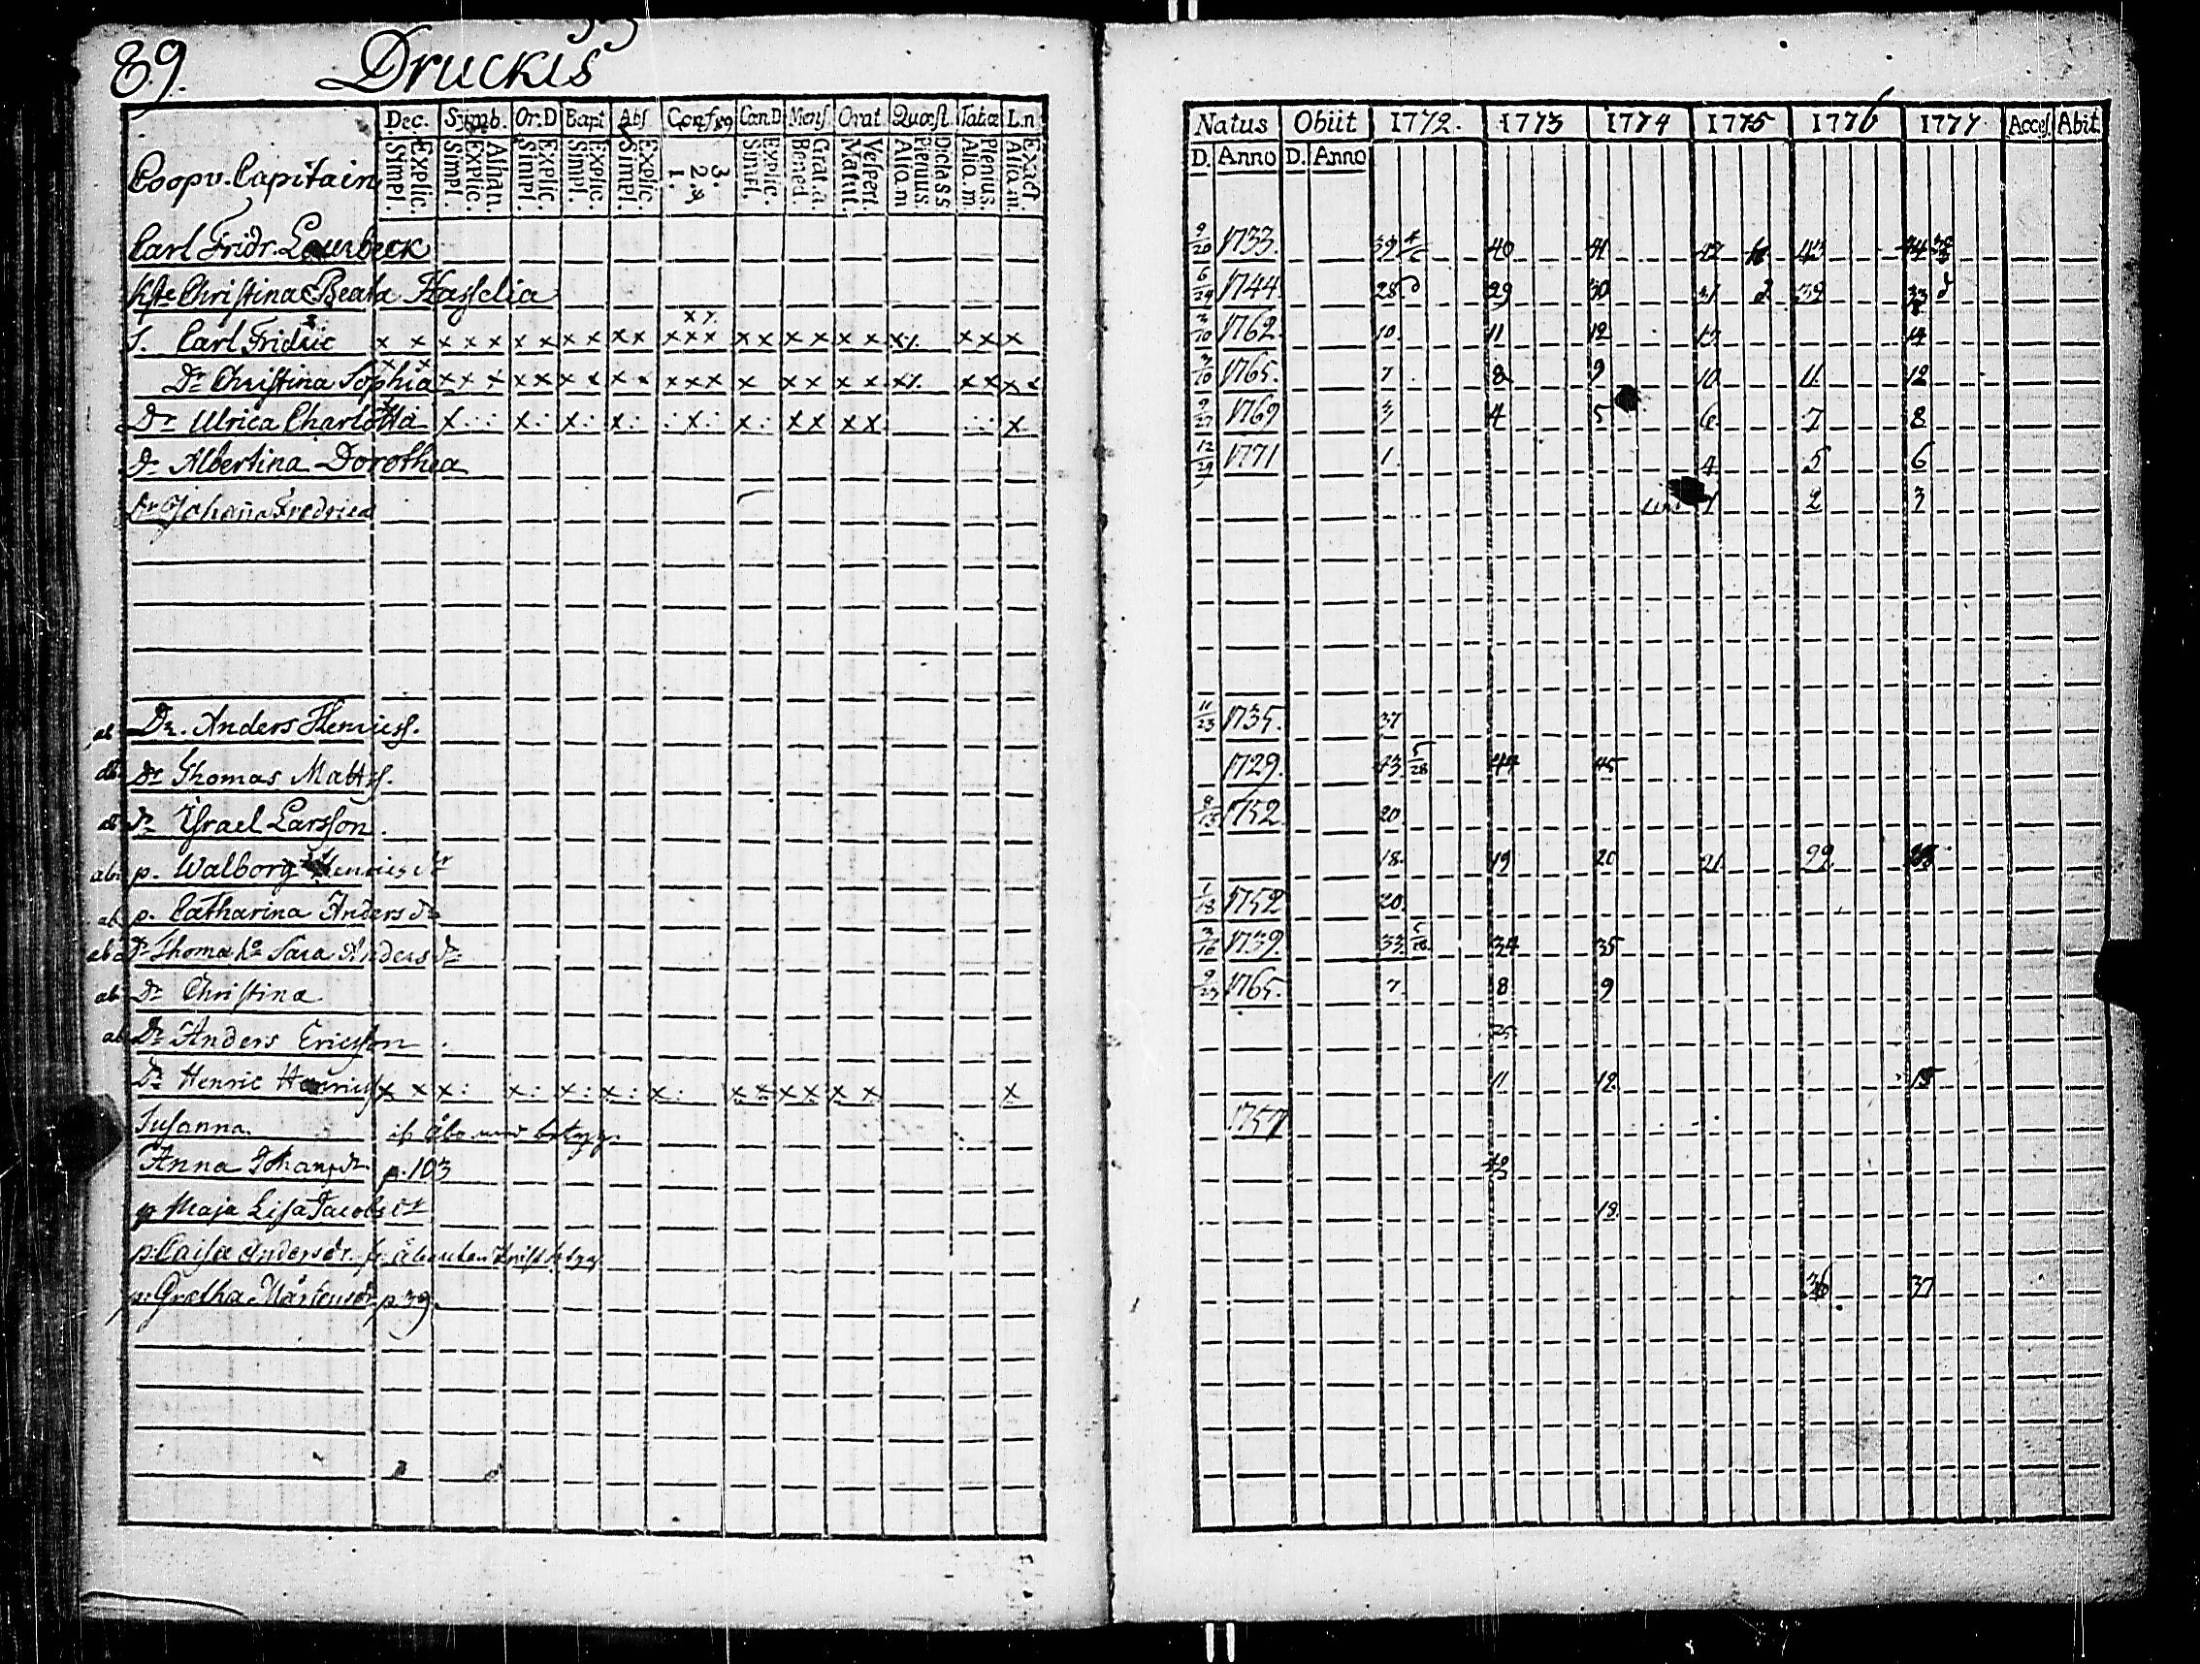 89. Druckis
Dec. Symb. Or.D Bapt Abs Confess Can D Mens. Orat. Quæst. Tabæ L.n
Simpl. Explic. Simpl. Explic. Athan. Simpl. Explic. Simpl. Explic. Simpl. Explic. 1. 2. 3. Simpl. Explic. Bened. Grat. a. Matut. Vespert. Aliq.m Plenius. Dicta S S Aliq.m. Plenius. Aliq.m. Exact.
Natus Obiit 1772. 1773 1774 1775 1776 1777. Acces. Abit.
D. Anno D. Anno
Coopv. Capitain
Carl Fridr. Laurbeck 9/20 1733. 39 40 41 42 43 44
Hste Christina Beata Hasselia 6/29 1744. 28. 29 30 31 32 33
S. Carl Fridric x x x x x x x x x x x x x x x x x x x x x x x x x 1762. 10. 11 12 13 14
Dr Christina Sophia x x x x x x x x x x x x x x x x x x x x x x 1765. 7 8 9 10 11. 12
Dr Ulrica Charlotta x x x x x x x x x x x 9/27 1769 3 4 5 6 7 8
Dr Albertina Dorothea 12/29 1771 1. 4 5 6
Dr Johana Fredrica 1 2 3
ab Dr. Anders Henricss. 11/23 1735. 37
ab Dr Thomas Matts. 1729. 43. 5/28 44 45
ab Dr Israel Larsson. 1752. 20
ab p. Walborg Henricsdr 18. 19 20 21 22
ab p. Catharina Anders dr 1/18 1752 20.
ab Dr Thoma ho Sara Anders dr 3/16 1739. 33. 34 35
ab Dr Christina 9/23 1765. 7. 8 9
ab Dr Anders Ericsson 25
Dr Henric Henricss x x x x x x x x x x x x x x 11 12. 15
Susanna. 1757
Anna Johansdr p. 103
p Maja Lisa Jacobs dr 18.
p. Caisa Andersdr.
p. Gretha Mårtensdr p. 39. 36 37